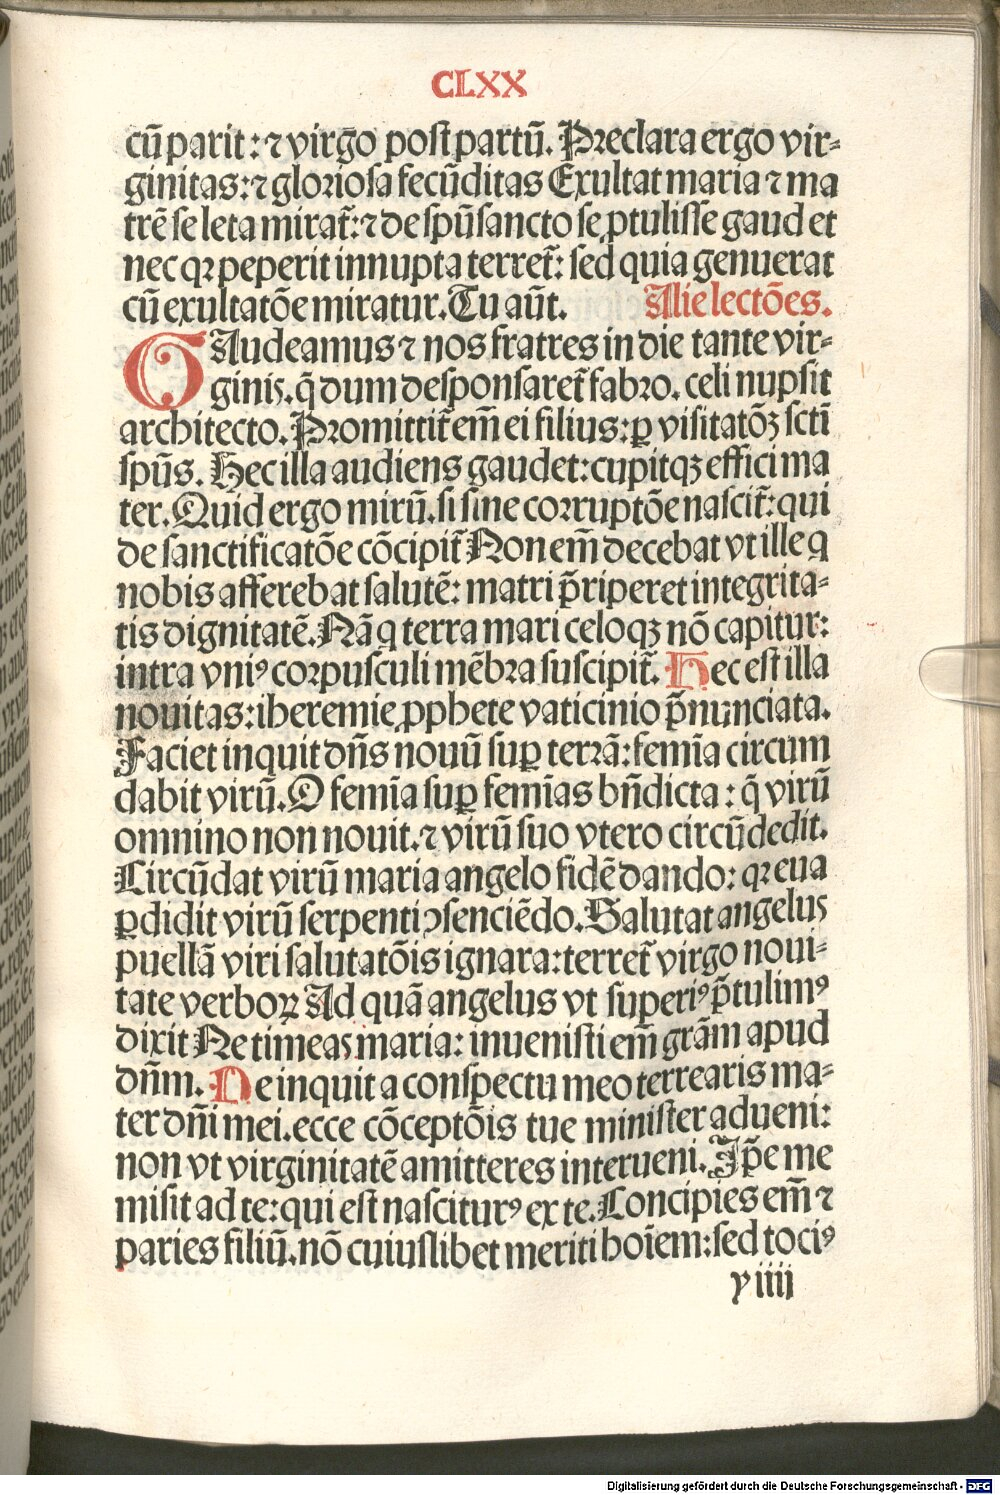 CLXX
cū parit: ⁊ virgo post partū. Preclara ergo vir⸗
ginitas: ⁊ gloriosa fecūditas Exultat maria ⁊ ma
trē se leta mirat̄: ⁊ de spū sancto se ꝓtulisse gaud et
nec qꝛ peperit innupta terret̄: sed quia genuerat
cū exultatōe miratur. Tu aūt. Alie lectōes.
GAudeamus ⁊ nos fratres in die tante vir⸗
ginis. q̄ dum desponsaret̄ fabro. celi nupsit
architecto. Promittit̄ em̄ ei filius: ꝑ visitatōꝫ sctī
spūs. Hec illa audiens gaudet: cupitqꝫ effici ma
ter. Quid ergo mirū. si sine corruptōe nascit̄: qui
de sanctificatōe cōcipit̄ Non em̄ decebat vt ille q
nobis afferebat salutē: matri p̄riperet integrita⸗
tis dignitatē. Nā q terra mari celoqꝫ nō capitur:
intra vniꝰ corpusculi mēbra suscipit̄. Hec est illa
nouitas: iheremie ꝓphete vaticinio p̄nunciata.
Faciet inquit dn̄s nouū suꝑ terrā: femīa circum
dabit virū. O femīa suꝑ femīas bn̄dicta: q̄ virū
omnino non nouit. ⁊ virū suo vtero circūdedit.
Circūdat virū maria angelo fidē dando: qꝛ eua
ꝑdidit virū serpenti ↄsenciēdo. Salutat angelus
puellā viri salutatōis ignara: terret̄ virgo noui⸗
tate verboꝝ Ad quā angelus vt superiꝰ p̄tulimꝰ
dixit Ne timeas maria: inuenisti em̄ grām apud
dn̄m. Ne inquit a conspectu meo terrearis ma⸗
ter dn̄i mei. ecce cōceptōis tue minister adueni:
non vt virginitatē amitteres interueni. Ip̄e me
misit ad te: qui est nasciturꝰ ex te. Concipies em̄ ⁊
paries filiū. nō cuiuslibet meriti hoīem: sed tociꝰ
y iiij
Digitalisierung gefördert durch die Deutsche Forschungsgemeinschaft - DFG